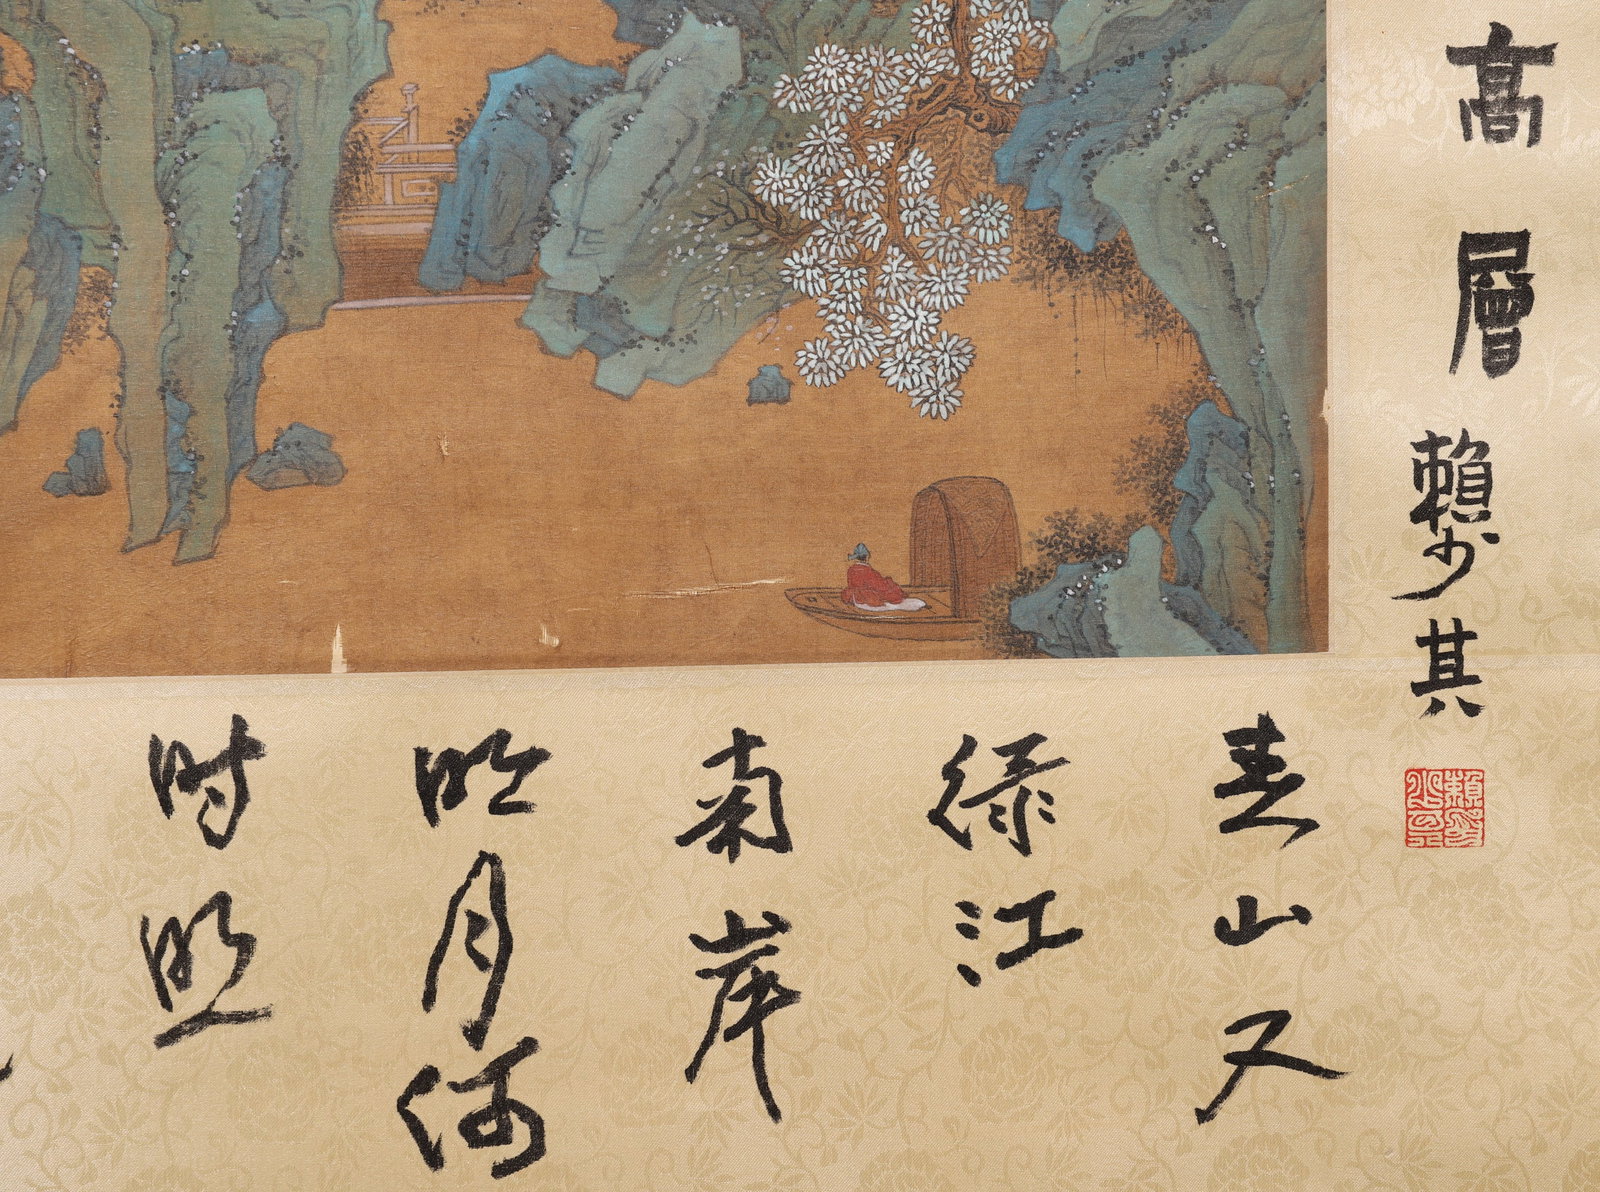 高層
賴少其
春山又
绿江
南岸
明月何
时照